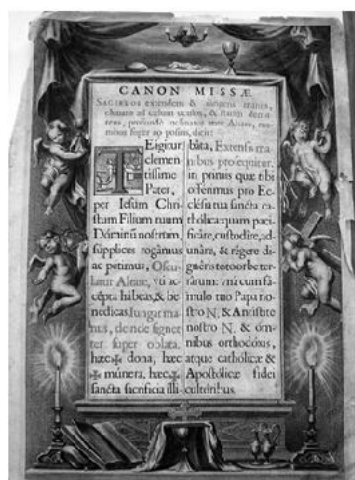 CANON MISSÆ.
Sacerdos extendens & iungens manus,
elevans ad cælum oculos, & statim demit-
tens, profundè inclinatus ante Altare, ma-
nibus super eo positis, dicit:
TE igitur,
clemen-
tissime
Pater,
per Iesum Chri-
stum Filium tuum
Dóminũ nostrum,
súpplices rogámus
ac pétimus, Oscu-
latur Altare, vti ac-
cépta hábeas, & be-
nedícas, Iungit ma-
nus, deinde signat
ter super oblata.
hæc ✠ dona, hæc
✠ múnera, hæc ✠
sancta sacrifícia illi-
báta, Extensis ma-
nibus prosequitur.
in primis quæ tibi
offérimus pro Ec-
clésia tua sancta ca-
thólica: quam paci-
ficáre, custodire, ad-
unáre, & régere di-
gnéris toto orbe ter-
rárum: vnà cum fá-
mulo tuo Papa no-
stro N. & Antístite
nostro N. & óm-
nibus orthodóxis,
atque cathólicæ &
Apostólicæ fidei
cultóribus.